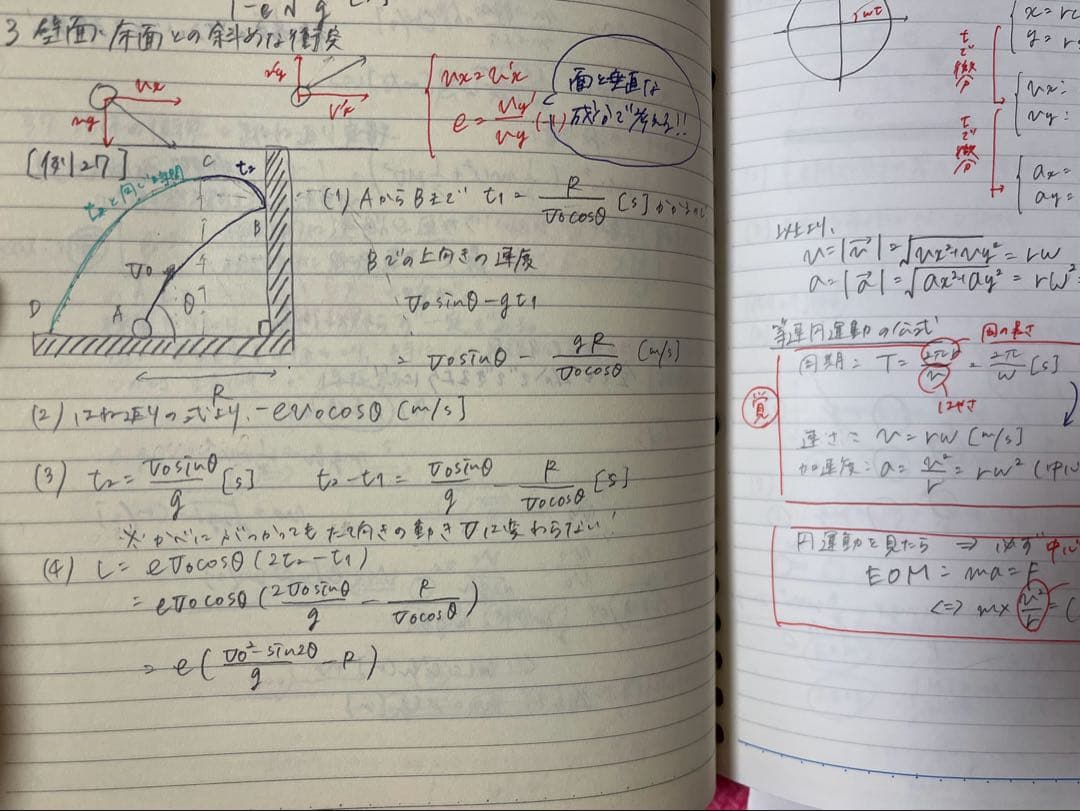 3 壁面、床面との斜めな衝突
vx
vy
v'y
v'x
vx = v'x
e = vy' / vy (-1)
面と垂直な
成分で考える!!
[例27]
C
t₂
t₂と同じ時間
B
v₀
D
A
θ
R
(1) AからBまで t₁ = R / v₀cosθ [s] かかるので
Bでの上向きの速度
v₀sinθ - gt₁
= v₀sinθ - gR / v₀cosθ [m/s]
(2) はね返りの式より、-ev₀cosθ [m/s]
(3) t₂ = v₀sinθ / g [s] t₂ - t₁ = v₀sinθ / g - R / v₀cosθ [s]
※かべにぶつかってもたて向きの動きは変わらない!
(4) L = ev₀cosθ (2t₂ - t₁)
= ev₀cosθ (2v₀sinθ / g - R / v₀cosθ)
= e (v₀² sin2θ / g - R)
rωt
tで微分
tで微分
x = r
y = r
vx =
vy =
ax =
ay =
以上より、
v = |v→| = √vx²+vy² = rω
a = |a→| = √ax²+ay² = rω²
等速円運動の公式
円の長さ
周期: T = 2πr / v = 2π / ω [s]
はやさ
覚
速さ: v = rω [m/s]
加速度: a = v² / r = rω² (中心
円運動を見たら ⇒ 必ず中心
EOM = ma = F
⇔ m × v² / r = (